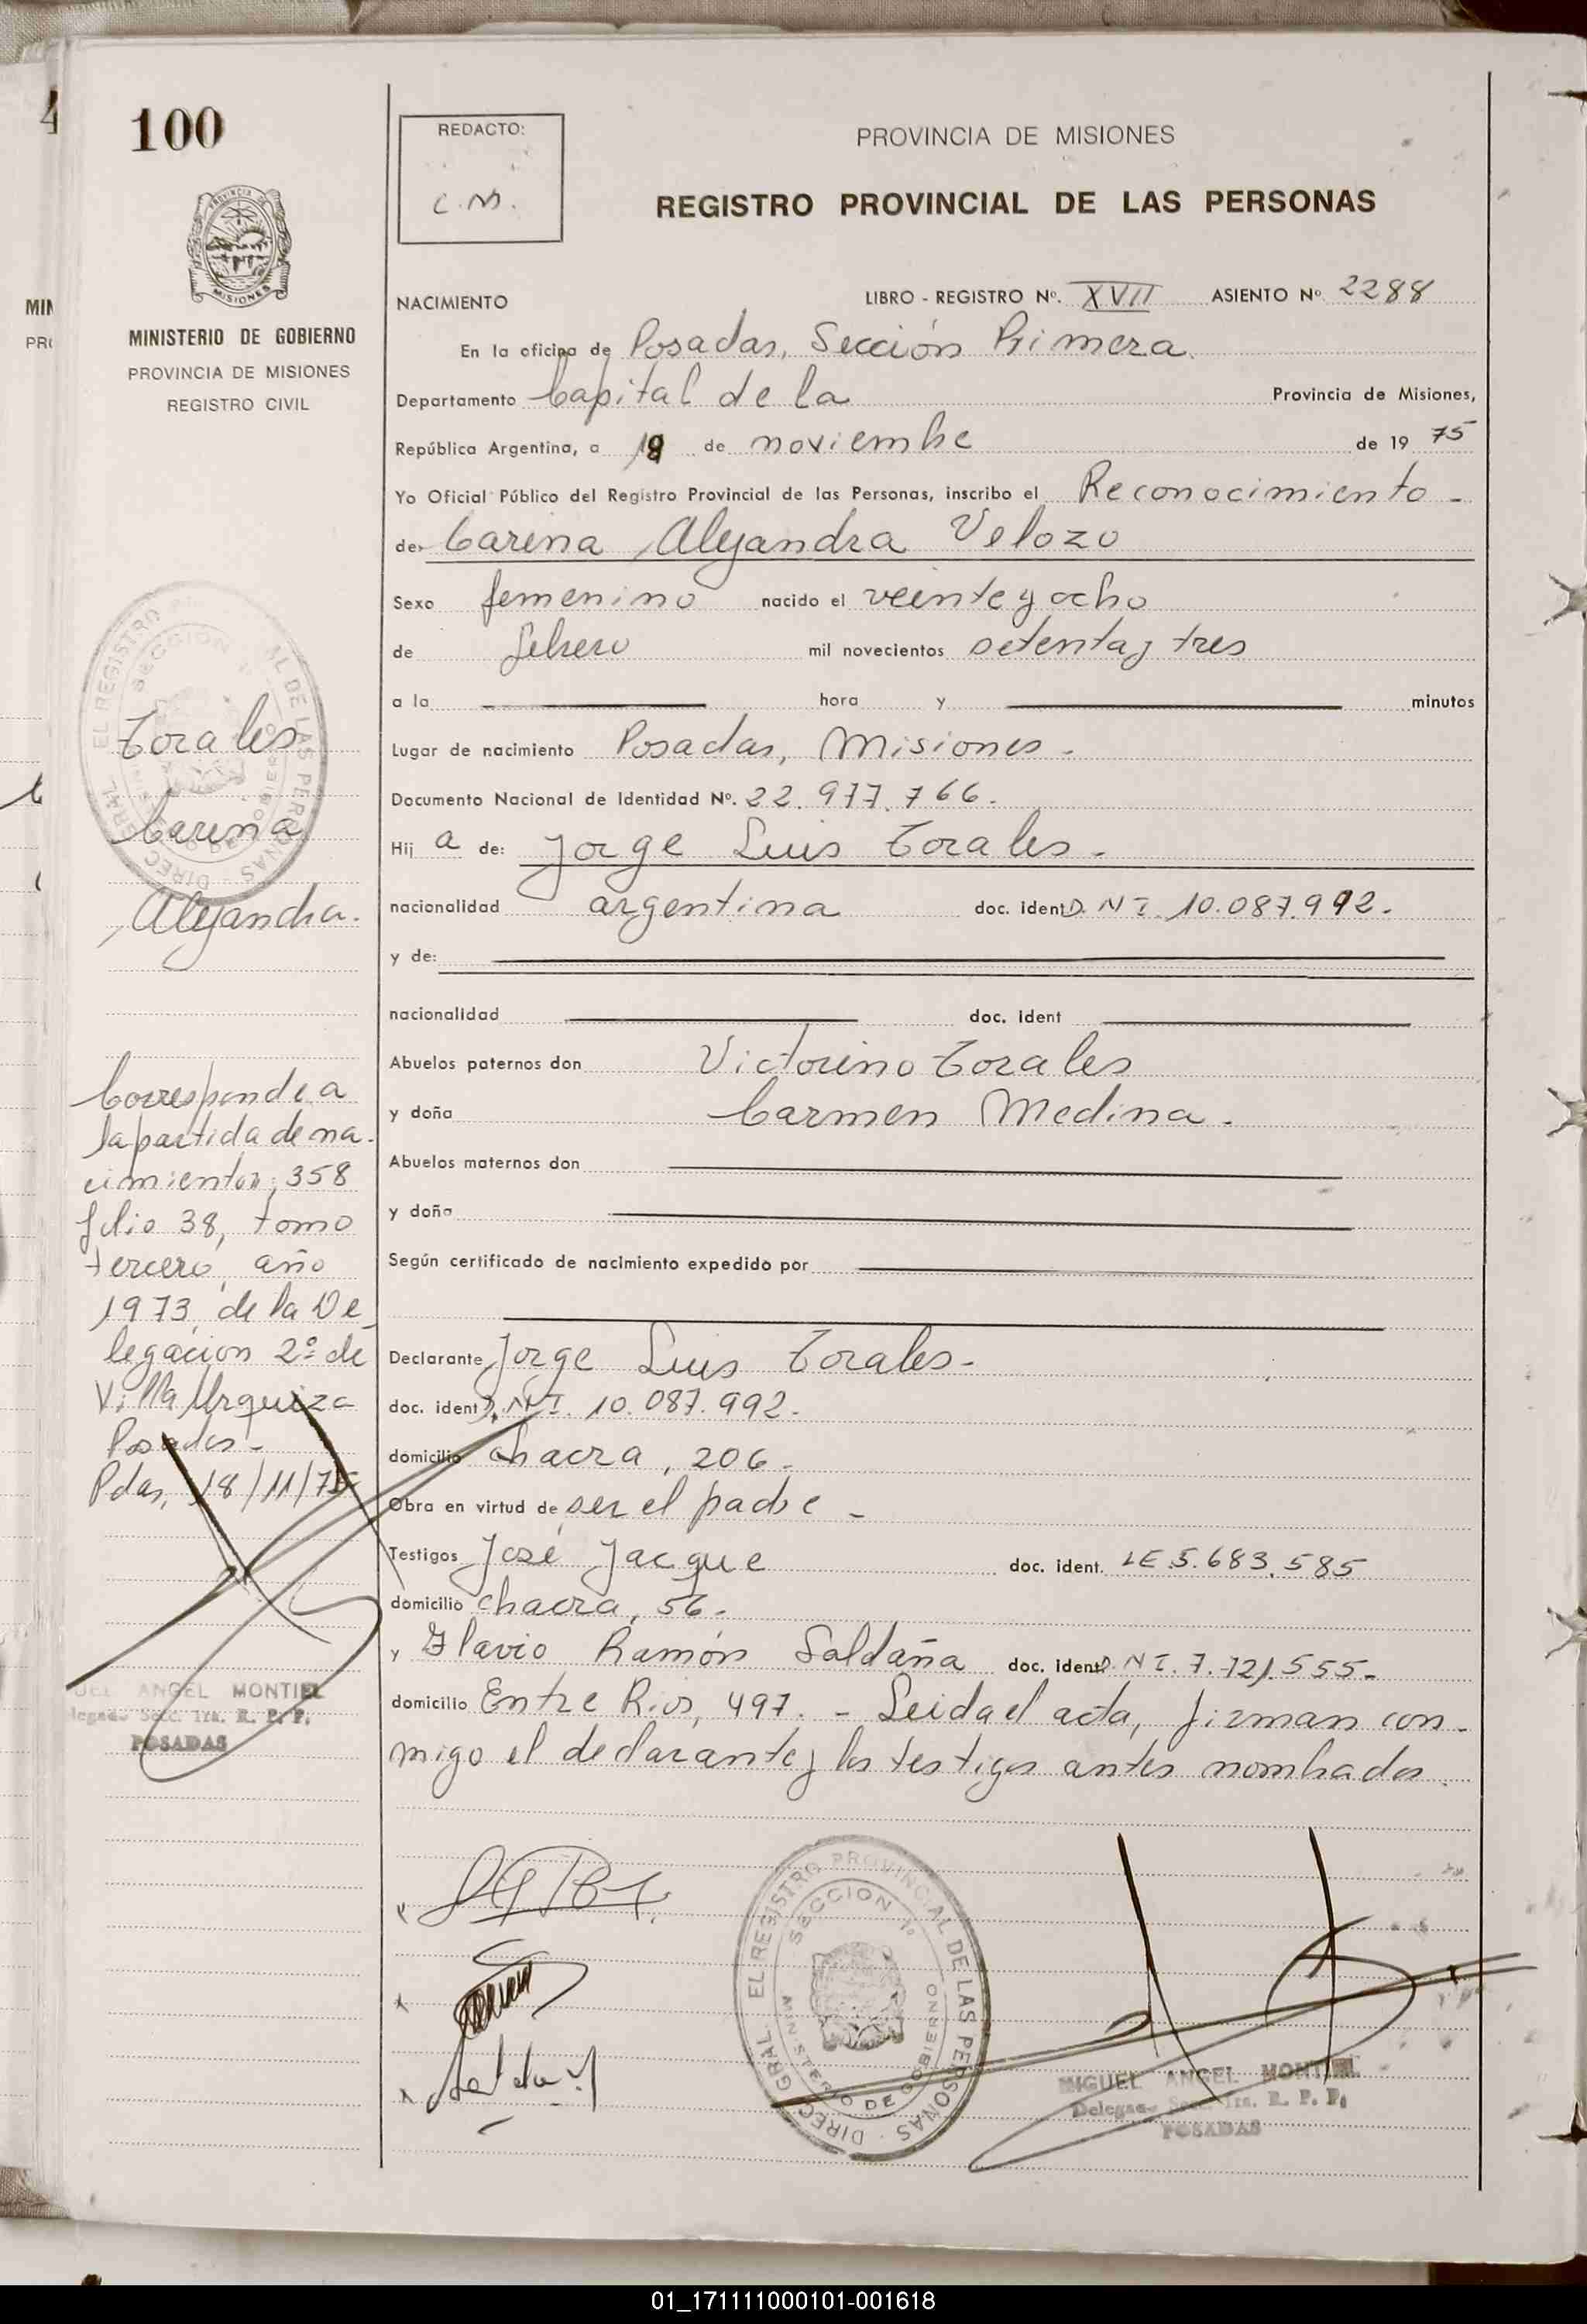 100
MINISTERIO DE GOBIERNO
PROVINCIA DE MISIONES
REGISTRO CIVIL
Torales
Carina
Alejandra.
Corresponde a
la partida de na-
cimiento n: 358
folio 38, tomo
tercero, año
1973, de la De
legación 2º de
Villa Urquiza
Posadas -
Pdas, 18/11/75
ANGEL MONTIEL
POSADAS
REDACTO:
C.M.
PROVINCIA DE MISIONES
REGISTRO PROVINCIAL DE LAS PERSONAS
NACIMIENTO LIBRO - REGISTRO Nº. XVII ASIENTO Nº 2288
En la oficina de Posadas, Sección Primera
Departamento Capital de la Provincia de Misiones,
República Argentina, a 18 de noviembre de 19 75
Yo Oficial Público del Registro Provincial de las Personas, inscribo el Reconocimiento -
de Carina Alejandra Velozo
Sexo femenino nacido el veinte y ocho
de febrero mil novecientos setenta y tres
a la hora y minutos
Lugar de nacimiento Posadas, Misiones -
Documento Nacional de Identidad Nº. 22.977.766.
Hij a de: Jorge Luis Torales -
nacionalidad argentina doc. ident D.N.I. 10.087.992.
y de:
nacionalidad doc. ident
Abuelos paternos don Victorino Torales
y doña Carmen Medina -
Abuelos maternos don
y doña
Según certificado de nacimiento expedido por
Declarante Jorge Luis Torales -
doc. ident D.N.I. 10.087.992.
domicilio chacra, 206 -
Obra en virtud de ser el padre -
Testigos José Jacque doc. ident. LE 5.683.585
domicilio chacra, 56 -
y Flavio Ramón Saldaña doc. ident D.N.I. 7.721.555 -
domicilio Entre Rios, 497. - Leida el acta, firman con-
migo el declarante y los testigos antes nombrados
DIREC. GRAL. EL REGISTRO PROVINCIAL DE LAS PERSONAS
SECCION 1º
MINISTERIO DE GOBIERNO
MIGUEL ANGEL MONTIEL
Delegado Secc. 1ra. R. P. P.
POSADAS
01_171111000101-001618